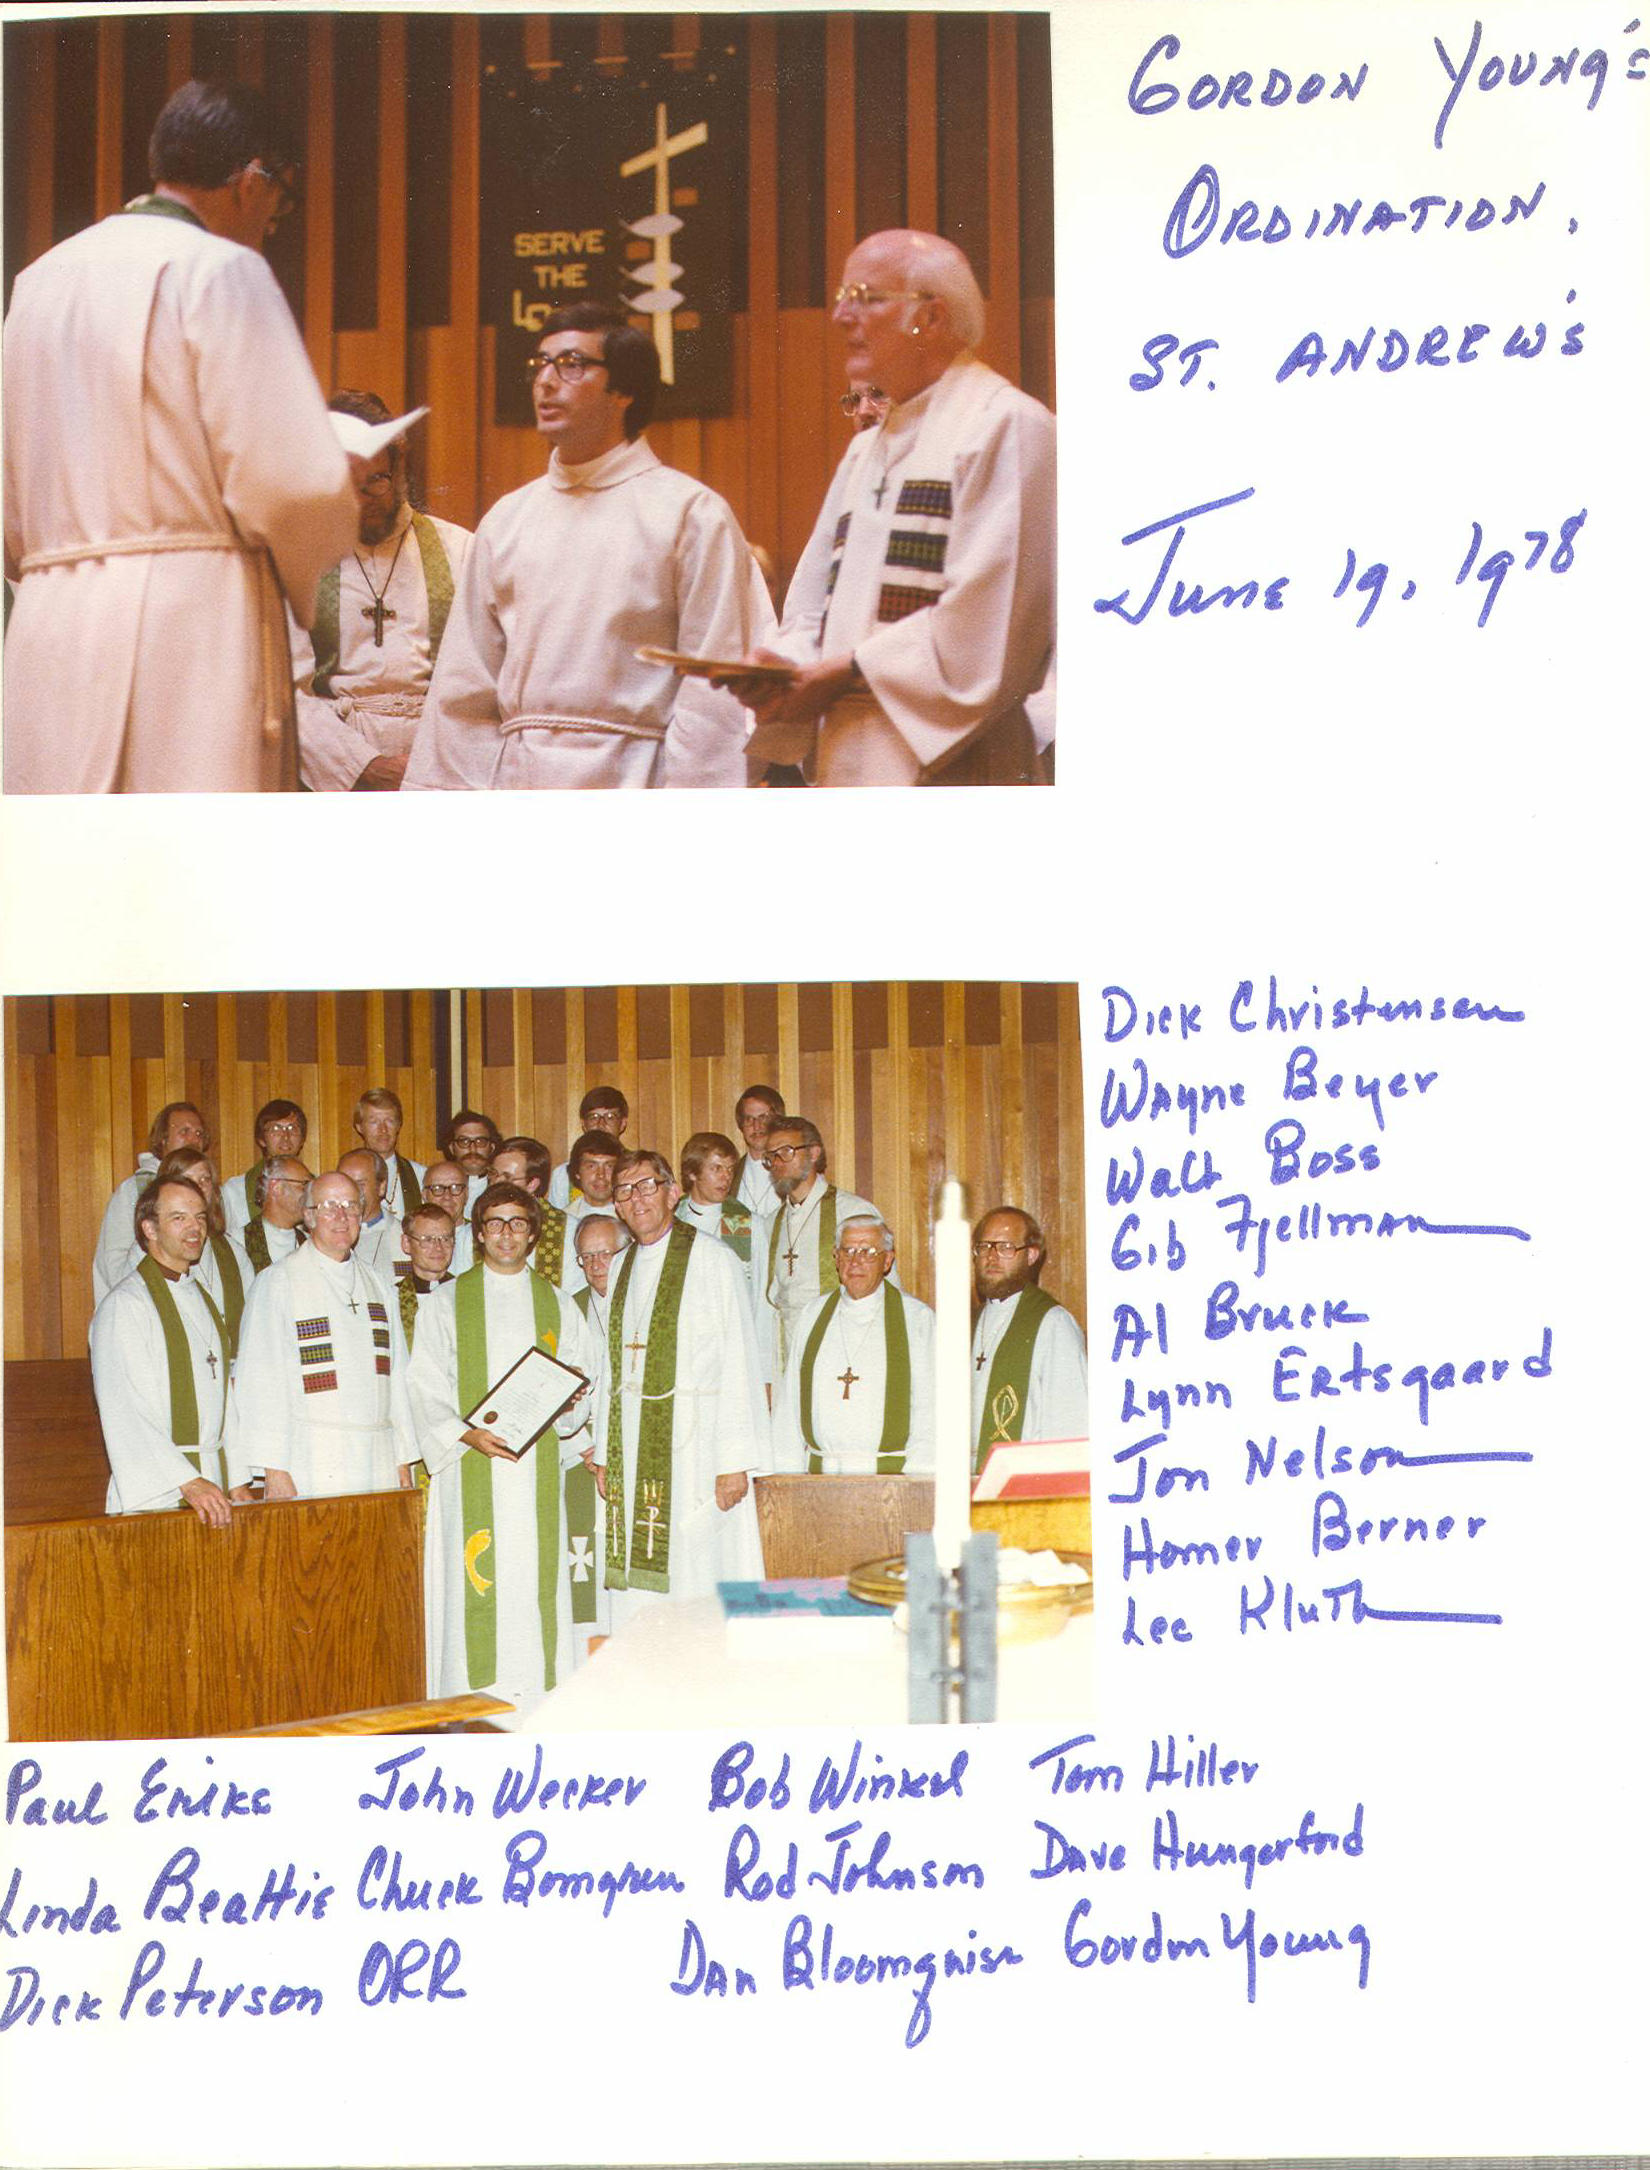 GORDON YOUNG'S
ORDINATION,
ST. ANDREW'S
JUNE 19, 1978
SERVE
THE
LO
Dick Christensen
Wayne Beyer
Walt Boss
Gib Fjellman
Al Bruck
Lynn Ertsgaard
Jon Nelson
Homer Berner
Lee Kluth
Paul Eriks John Wecker Bob Winkel Tom Hiller
Linda Beattie Chuck Bomgren Rod Johnson Dave Hungerford
Dick Peterson ORR Dan Bloomquist Gordon Young